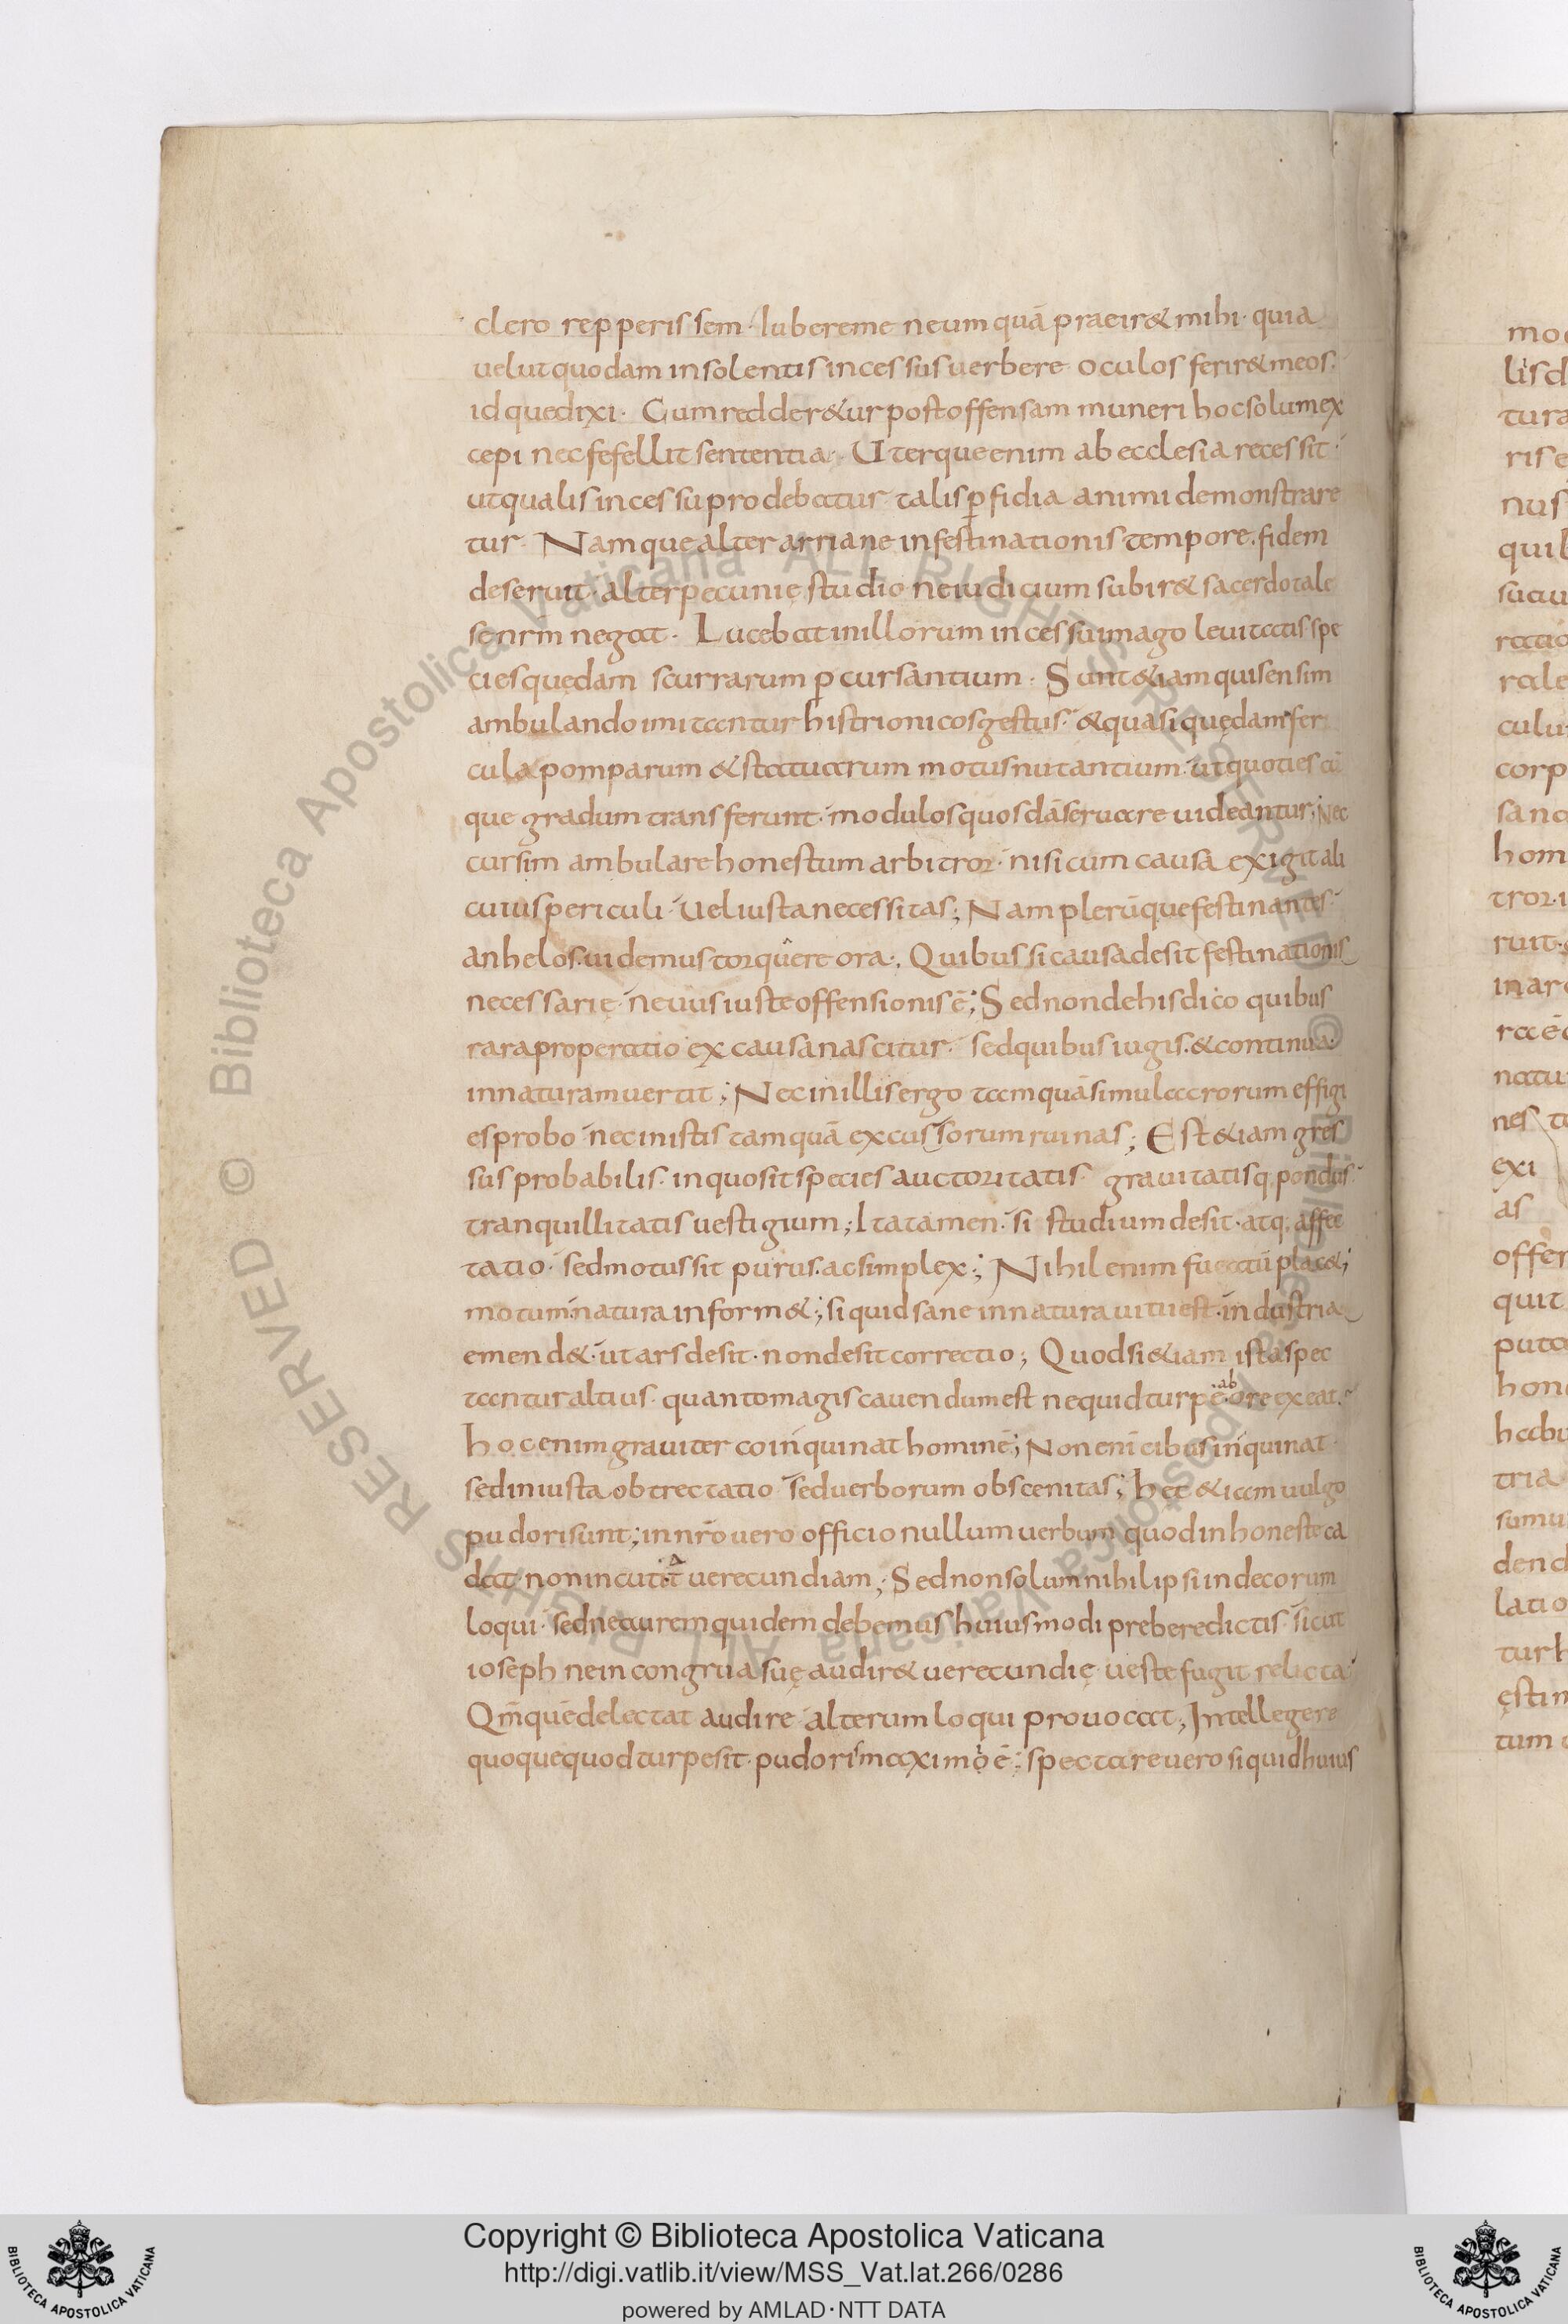 clero repperissem. Iubereme neumquā praeir& mihi. quia
uelut quodam insolentis incessus uerbere oculos ferir& meos.
id quedixi. Cum redder&ur post offensam muneri hoc solum ex
cepi nec fefellit sententia. Uterque enim ab ecclesia recessit.
ut qualis incessu prodebatur talis ꝑfidia animi demonstrare
tur. Namque alter arriane infestinationis tempore. fidem
deseruit. alter pecunię studio ne iudicium subir& sacerdotale
se nrm negat. Lucebat in illorum incessu imago leuitatis spe
cies quędam scurrarum ꝑcursantium. Sunt &iam qui sensim
ambulando imitantur histrionicos gestus. & quasi quędam fer
cula pomparum & statuarum motus nutantium. ut quoties cū
que gradum transferunt. modulos quosdā seruare uideantur; Nec
cursim ambulare honestum arbitror. nisi cum causa exigit ali
cuius periculi. uel iusta necessitas; Nam plerūque festinantes.
anhelos uidemus torquere ora. Quibus si causa desit festinationis
necessarię. neuus iuste offensionis ē; Sed non de his dico quibus
rara properatio ex causa nascitur. sed quibus iugis. & continua.
in naturam uertit; Nec in illis ergo tamquā simulacrorum effigi
es probo. nec in istis tamquā excussorum ruinas; Est &iam gres
sus probabilis. in quo sit species auctoritatis grauitatisq; pondus.
tranquillitatis uestigium; Ita tamen. si studium desit. atq; affec
tatio. sed motus sit purus. ac simplex; Nihil enim fucatū plac&;
motum. natura inform&; si quid sane in natura uitii est. industria
emend&. ut ars desit. non desit correctio; Quod si &iam ista spec
tantur altius. quanto magis cauendum est nequid turpe ab ore exeat.
hoc enim grauiter coinquinat hominē; Non enī cibus inquinat.
sed iniusta obtrectatio sed uerborum obscenitas; Hęc &iam uulgo
pudori sunt; in nr̄o uero officio nullum uerbum quod inhoneste ca
dat. non incutiat uerecundiam; Sed non solum nihil ipsi indecorum
loqui. sed ne aurem quidem debemus huiusmodi prebere dictis. sicut
ioseph ne incongrua suę audir& uerecundię ueste fugit relicta.
Qm̄ quē delectat audire. alterum loqui prouocat; Intellegere
quoque quod turpe sit. pudori maximo ē; spectare uero si quid huius
mo
lisd
tura
ris e
nus
quib
suau
ratio
rale
culu
corp
sanc
hom
tror. i
ruit.
in ar
ra ē
natu
nes
exi
as
offer
quit
puta
hon
habu
tria
sumu
den
latio
tur h
ęstim
tum
Copyright © Biblioteca Apostolica Vaticana
http://digi.vatlib.it/view/MSS_Vat.lat.266/0286
powered by AMLAD·NTT DATA
BIBLIOTECA APOSTOLICA VATICANA
BIBLIOTECA APOSTOLICA VATICANA
© Biblioteca Apostolica Vaticana ALL RIGHTS RESERVED